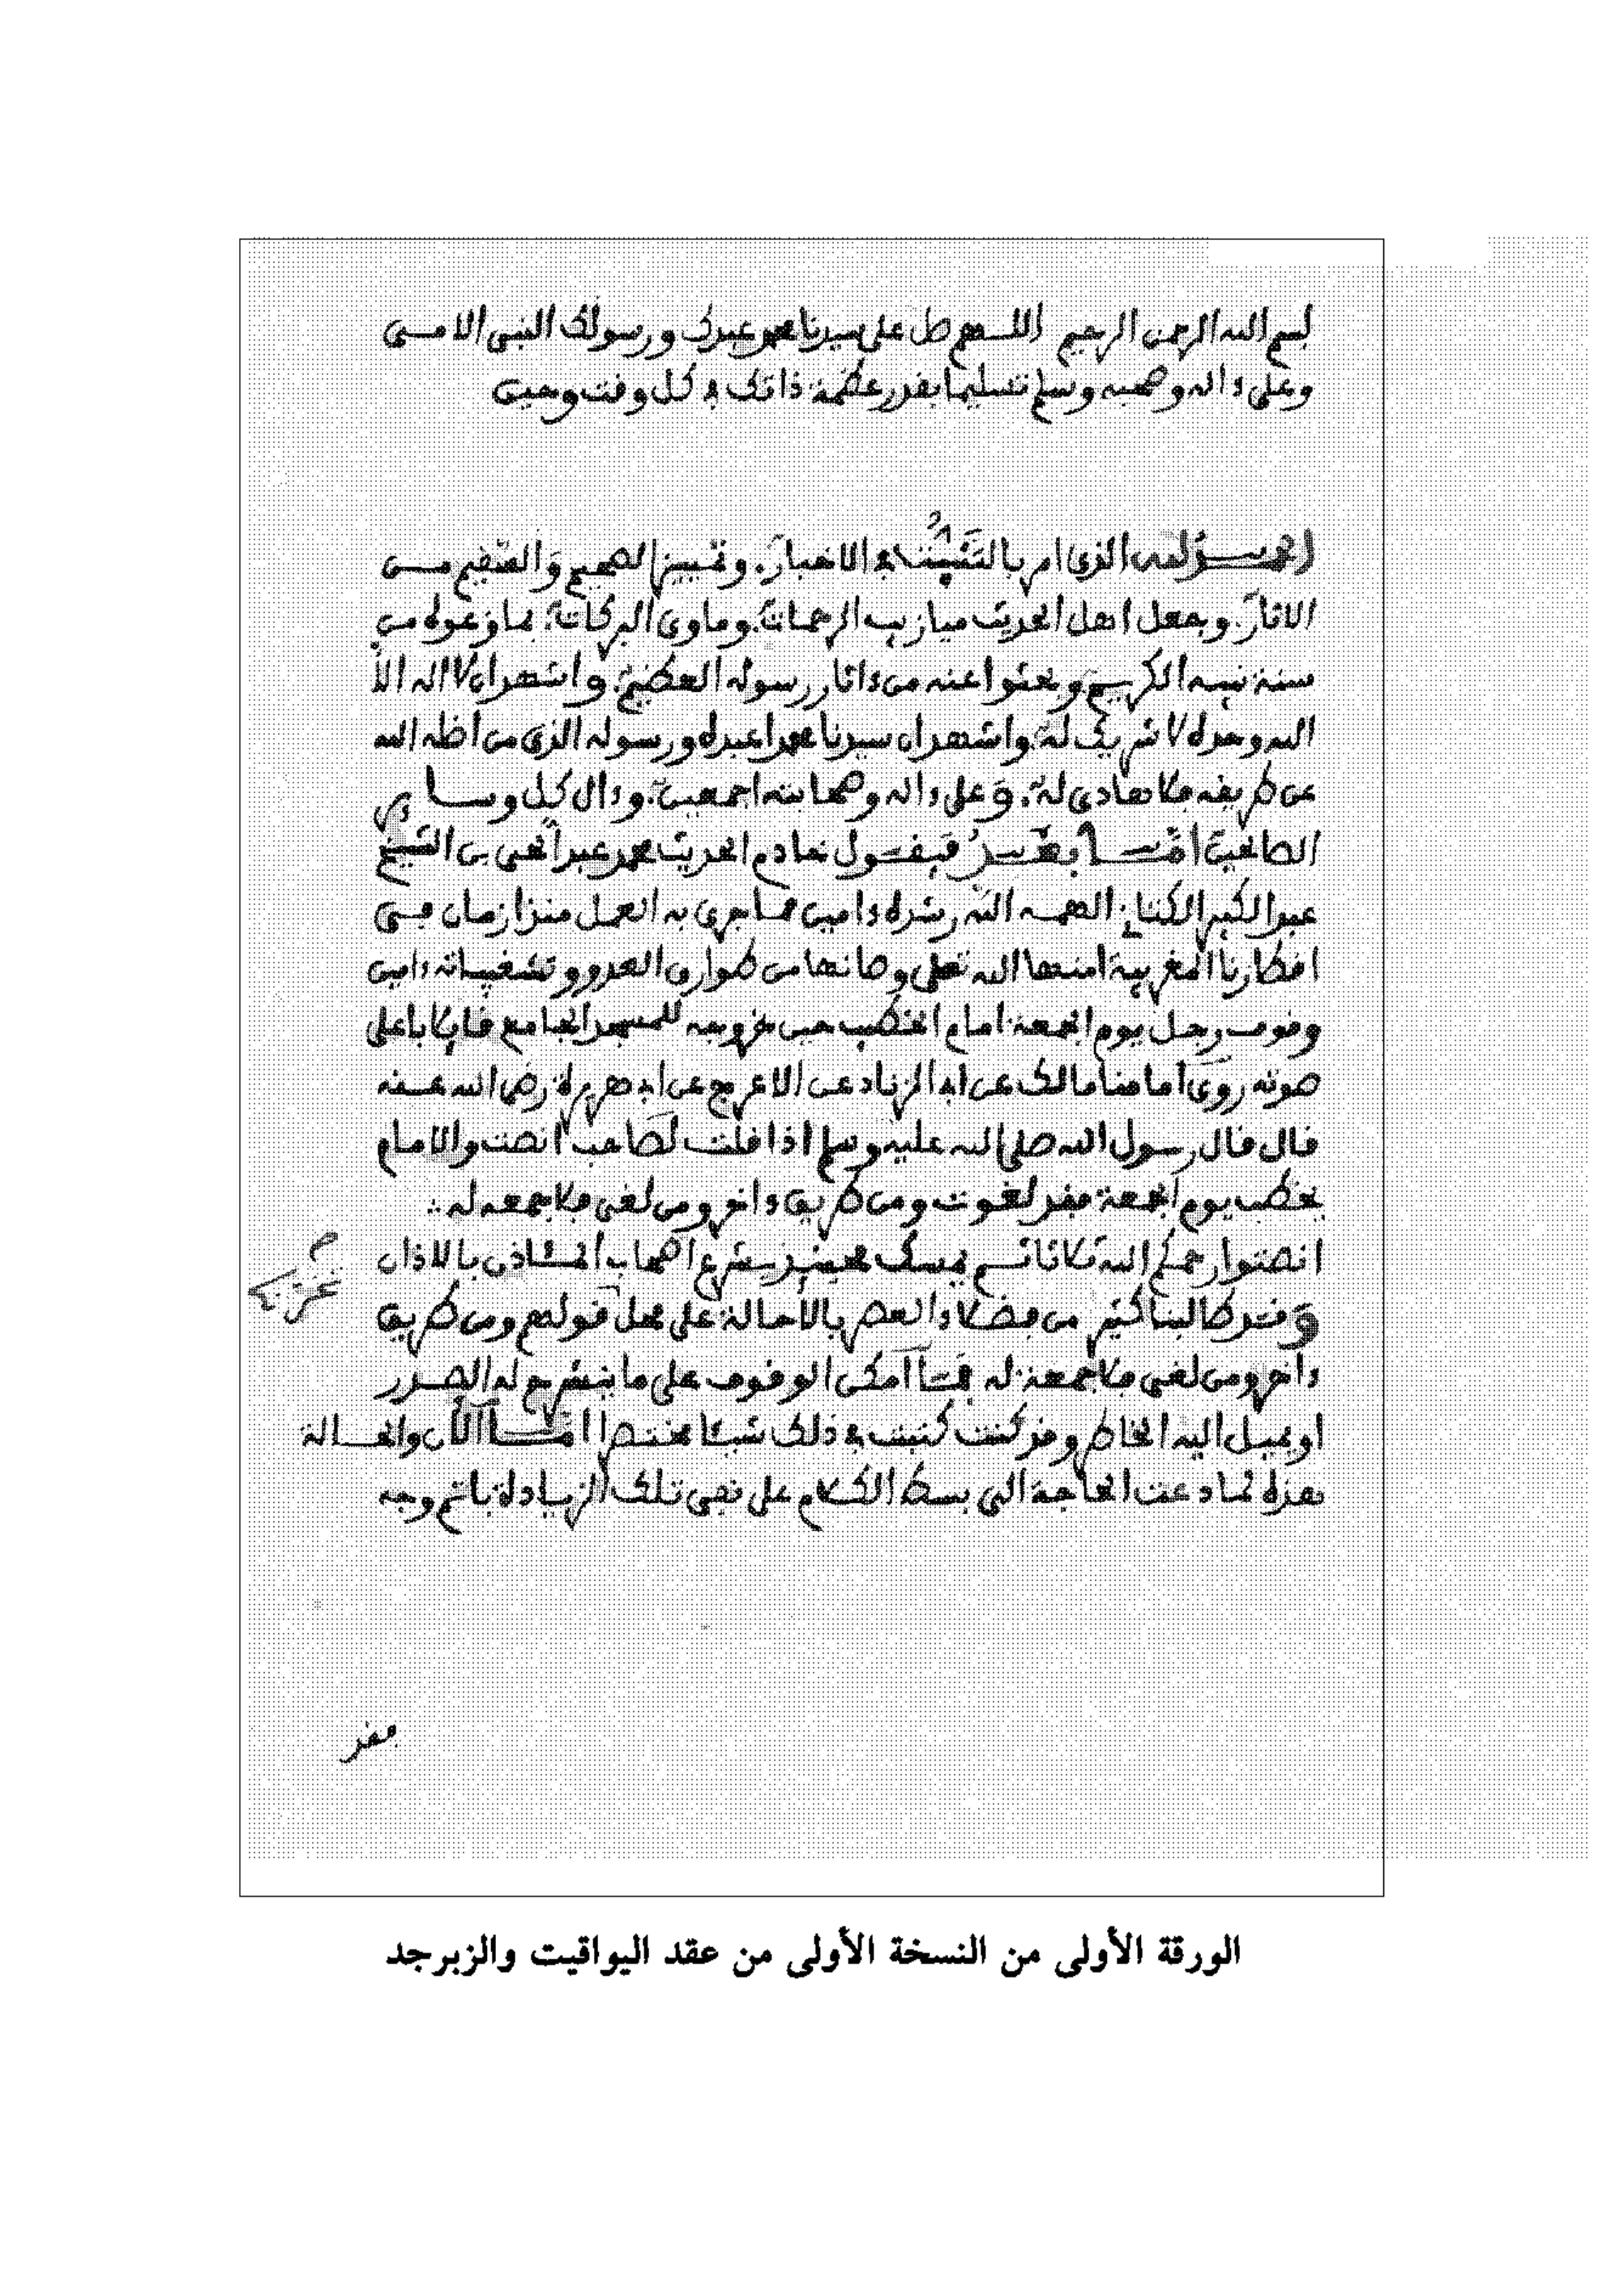 بسم الله الرحمن الرحيم اللهم صل على سيدنا محمد عبدك ورسولك النبي الامي
وعلى ءاله وصحبه وسلم تسليما بقدر عظمة ذاتك في كل وقت وحين
الحمد لله الذي امر بالتثبت في الاخبار. وتمييز الصحيح والسقيم من
الاثار. وجعل اهل الحديث ميازيب الرحمات. وماوى البركات. بما وعوه من
سنة نبيه الكريم وبحثوا عنه من ءاثار رسوله العظيم. واشهد ان لا اله الا
الله وحده لا شريك له. واشهد ان سيدنا محمدا عبده ورسوله الذي من اضله الله
عن طريقه فلا هادي له. وعلى ءاله وصحابته اجمعين. وءال كل وساير
الصالحين اما بعد فيقول خادم الحديث محمد عبد الحي بن الشيخ
عبد الكبير الكتاني الهمه الله رشده ءامين مما جرى به العمل منذ ازمان في
اقطارنا المغربية امنها الله تعلى وصانها من طوارق العدو وتشغيباته ءامين
وقوف رجل يوم الجمعة امام الخطيب حين خروجه للمسجد الجامع قايلا باعلى
صوته روى امامنا مالك عن ابي الزناد عن الاعرج عن ابي هريرة رضي الله عنه
قال قال رسول الله صلى الله عليه وسلم اذا قلت لصاحبك انصت والامام
يخطب يوم الجمعة فقد لغوت ومن طريق ءاخر ومن لغى فلا جمعه له
انصتوا رحمكم الله ثلاثا ثم يمسك فحينئذ يشرع اصحاب المئاذن بالاذان
وقد طالبنا كثير من فضلاء العصر بالاحالة على محل قولهم ومن طريق
ءاخر ومن لغى فلا جمعة له فما امكن الوقوف على ما ينشرح له الصدر
او يميل اليه الخاطر وقد كنت كتبت في ذلك شيئا مختصرا اما الآن والحالة
هذه لما دعت الحاجة الى بسط الكلام على نفي تلك الزيادة باتم وجه
فقد
الورقة الأولى من النسخة الأولى من عقد اليواقيت والزبرجد